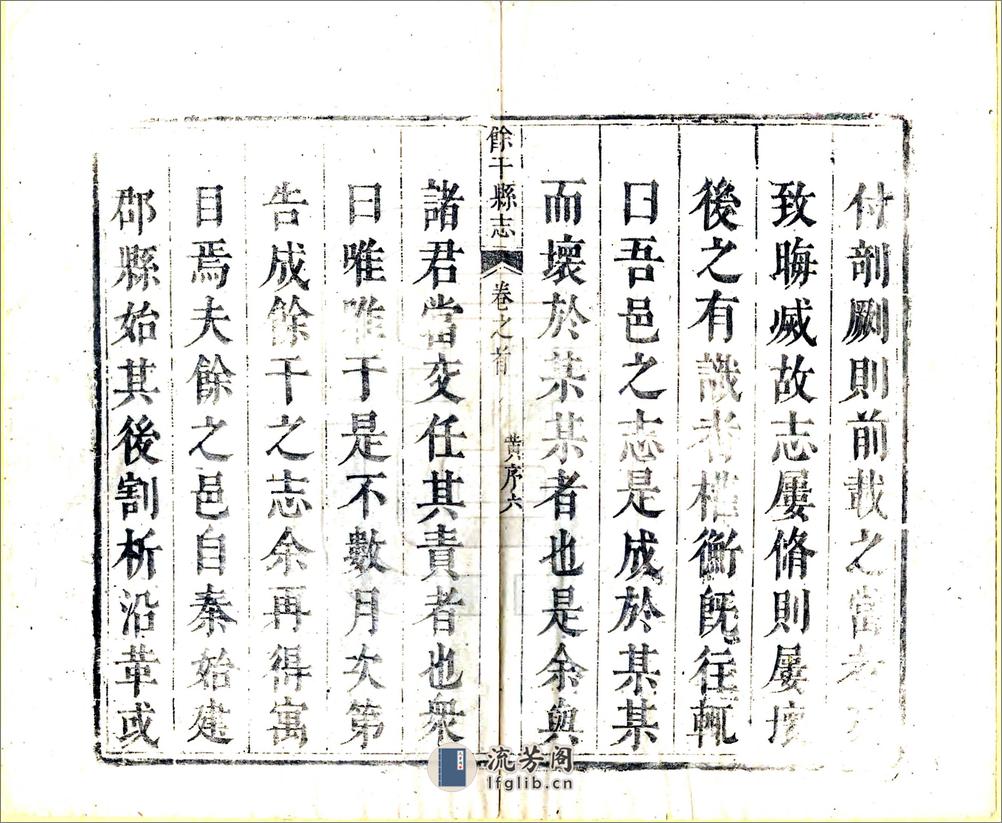 付剞劂則前載之當者不
致晦滅故志屢脩則屢壞
後之有識者權衡旣往輒
曰吾邑之志是成於某某
而壞於某某者也是余與
餘干縣志
卷之首
黄序六
諸君當交任其責者也衆
曰唯唯于是不數月次第
告成餘干之志余再得寓
目焉夫餘之邑自秦始建
郡縣始其後割析沿革或
流芳阁
lfglib.cn